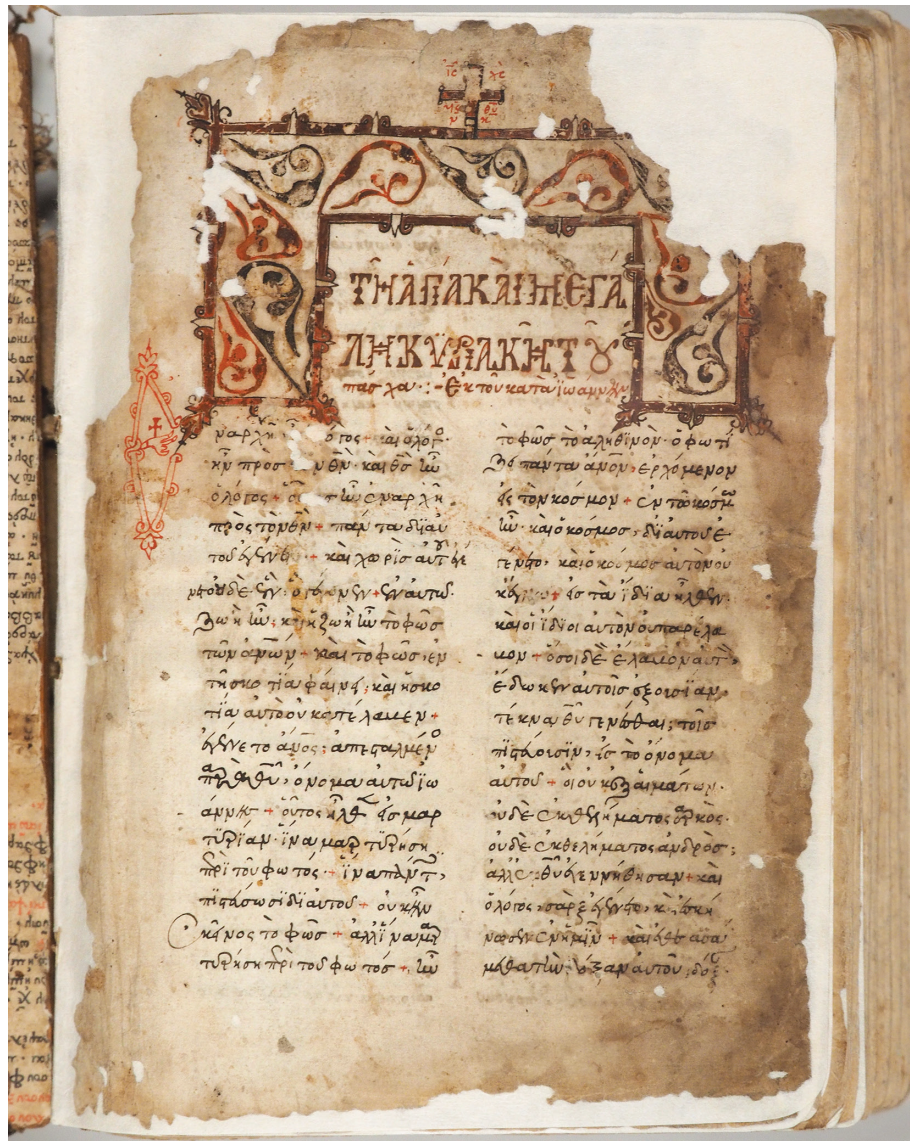 ΤΗ ΑΓΙΑ ΚΑΙ ΜΕΓΑ
ΛΗ ΚΥΡΙΑΚΗ ΤΟΥ
πάσχα :- Ἐκ τοῦ κατὰ ἰωάννην
ναρχῆ ὁ λόγος + καὶ ὁ λόγο
ἦν πρὸς θν καὶ θς ἦν
ὁ λόγος + ἦν ἐν ἀρχῆ
πρὸς τὸν θν + πάντα δι αὐ
τοῦ ἐγένε + καὶ χωρὶς αὐτοῦ ἐγέ
νετο οὐδὲ ἕν ὃ γέγονεν + ἐν αὐτῶ
ζωὴ ἦν καὶ ἡ ζωὴ ἦν τὸ φῶς
τῶν ἀνων + καὶ τὸ φῶς ἐν
τῆ σκοτία φαίνει καὶ ἡ σκο
τία αὐτὸ οὐ κατέλαβεν +
ἐγένετο ἄνος ἀπεσταλμένο
παρὰ θυ ὄνομα αὐτῶ ἰω
άννης + οὗτος ἦλθεν εἰς μαρ
τυρίαν ἵνα μαρτυρήση
περὶ τοῦ φωτός + ἵνα πάντες
πιστεύσωσι δι αὐτοῦ + οὐκ ἦν
ἐκεῖνος τὸ φῶς + ἀλλ ἵνα μαρ
τυρήση περὶ τοῦ φωτός + ἦν
τὸ φῶς τὸ ἀληθινὸν ὃ φωτί
ζει πάντα ἄνον ἐρχόμενον
εἰς τὸν κόσμον + ἐν τῶ κόσμω
ἦν καὶ ὁ κόσμος δι αὐτοῦ ἐ
γένετο καὶ ὁ κόσμος αὐτὸν οὐ
κ ἔγνω + εἰς τὰ ἴδια ἦλθεν
καὶ οἱ ἴδιοι αὐτὸν οὐ παρέλα
βον + ὅσοι δὲ ἔλαβον αὐτὸν
ἔδωκεν αὐτοῖς ἐξουσίαν
τέκνα θυ γενέσθαι τοῖς
πιστεύουσιν εἰς τὸ ὄνομα
αὐτοῦ + οἳ οὐκ ἐξ αἱμάτων
οὐδὲ ἐκ θελήματος σαρκὸς
οὐδὲ ἐκ θελήματος ἀνδρός
ἀλλ ἐκ θυ ἐγεννήθησαν + καὶ
ὁ λόγος σὰρξ ἐγένετο καὶ ἐσκή
νωσεν ἐν ἡμῖν + καὶ ἐθεασά
μεθα τὴν δόξαν αὐτοῦ δόξ